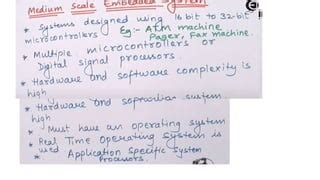 Medium Scale Embedded System
* Systems designed using 16 bit to 32-bit
microcontrollers Eg:- ATM machine,
Pager, Fax machine.
* Multiple microcontrollers or
Digital signal processors.
* Hardware and software complexity is
high
* Hardware and
high
* Must have an operating system
* Real Time Operating System is
used
* Application Specific System
Processors.